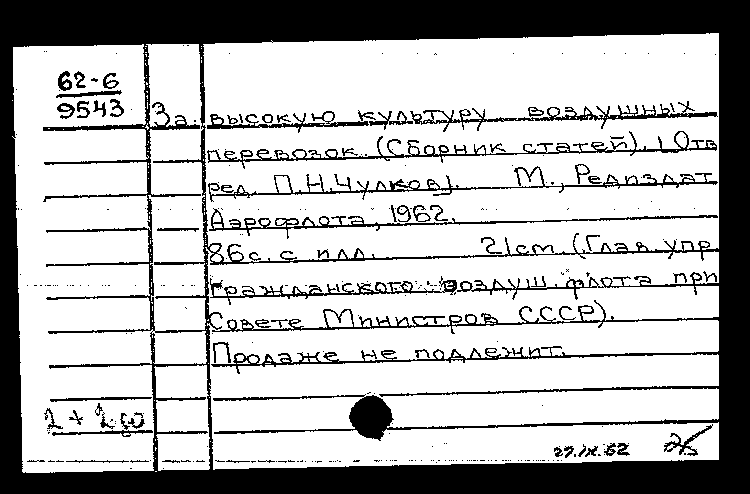 62-6
9543
За высокую культуру воздушных
перевозок. (Сборник статей). [Отв
ред. П.Н.Чулков]. М., Редиздат
Аэрофлота, 1962.
86с. с илл. 21см. (Глав. упр.
гражданского воздуш. флота при
Совете Министров СССР).
Продаже не подлежит.
2 +
27.IX.62